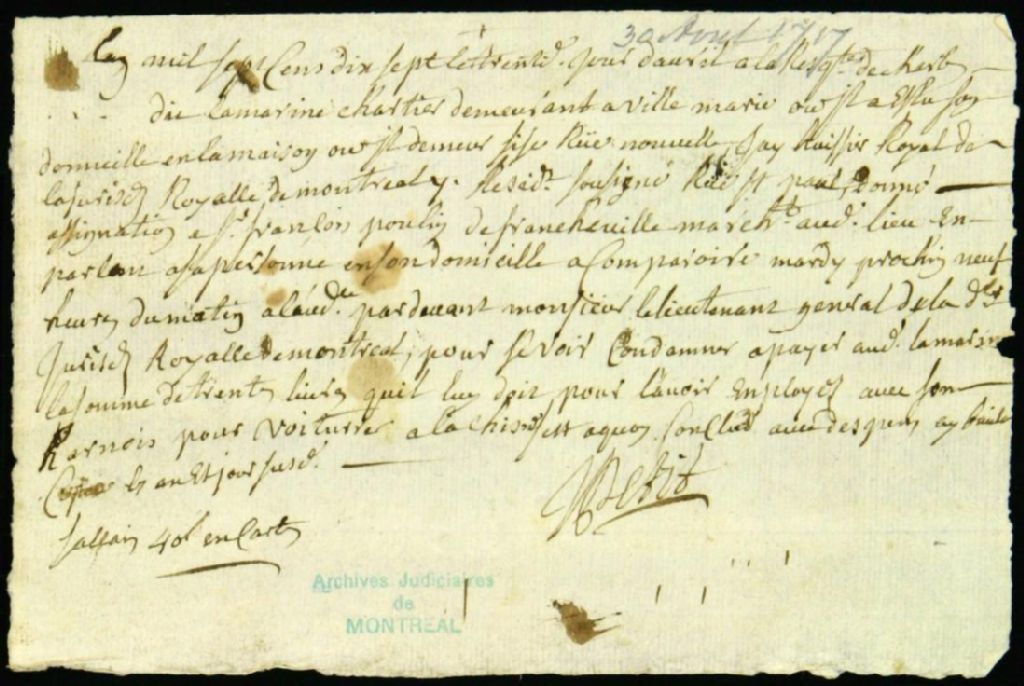 30 Avril 1717
Lan mil sept Cens dix sept le trente.e Jour davril a la Req.te de
dit lamarine chartier demeurant a ville marie ou Jl a Eslu son
domicille en la maison ou Jl demeur size Rüe nouvelle, Jay huissier Royal de
la Jurisd.n Royalle de montreal y. Resid.t sousigné donné
assignation a S.r françois poulin de francheville march.d aud. lieu En
parlant a sa personne en son domicille a Comparoire mardy prochin neuf
heures du matin a laud.ce pardevant monsieur le lieutenant general de la d.te
Jurisd.n Royalle de montreal, pour se voir Condamner a payer aud. lamarine
la somme de trente livres quil luy doit pour lavoir Employez avec son
harnois pour voiturer a la chine aquoy Conclud avec despens
Copie les an Et jour susd.
Petit
sallair 40s en Carte
Archives Judiciaires
de
MONTRÉAL